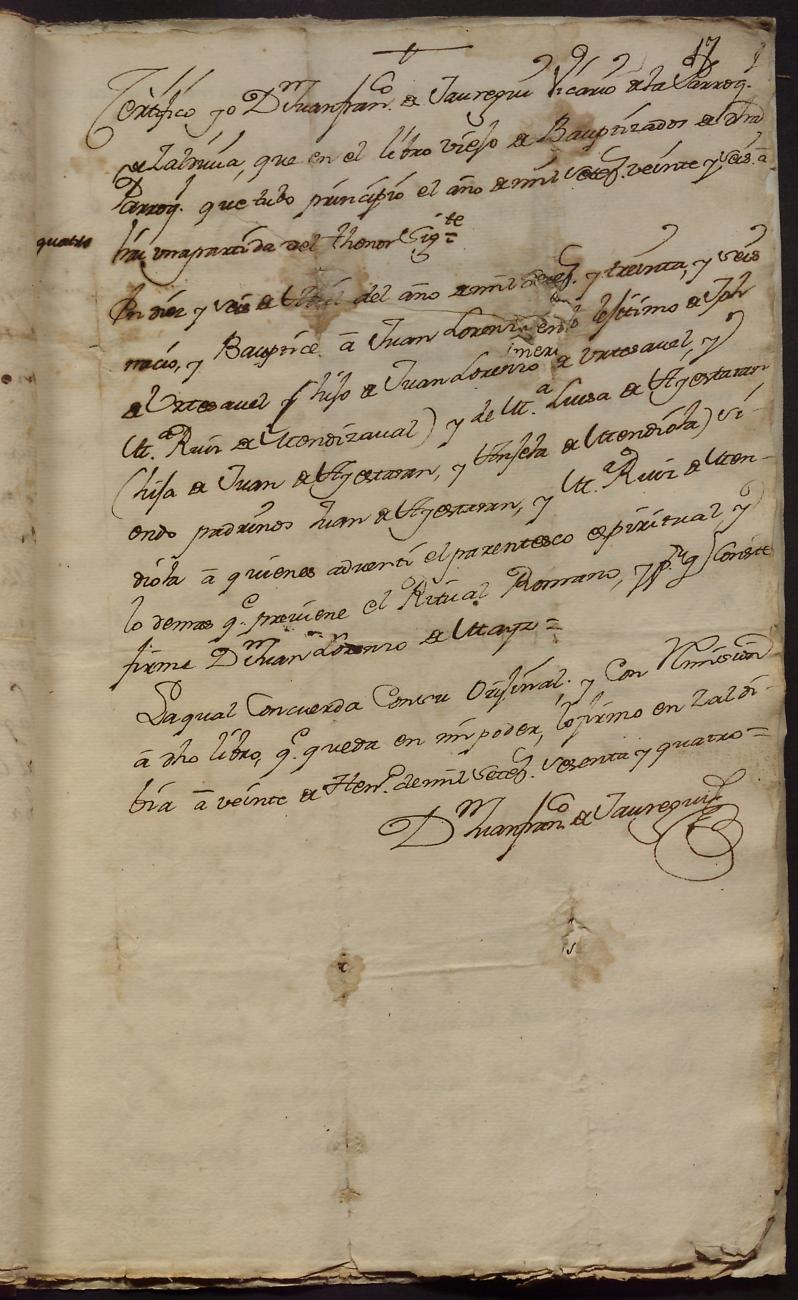 17
Certifico yo Dn Juan fran.co de Jauregui Vicario de la Parroq.
de Zaldivia, que en el libro viejo de Bauptizados de dha
Parroq. que tubo principio el año de mil setez. veinte y seis. a
quatro
hai una partida del thenor Sig.te =
En diez y seis de Abril del año de mil setez. y treinta, y seis
nacio, y Bauptice â Juan Lorenzo lexitimo de Joh
de Urtesavel y (hijo de Juan Lorenzo de Urtesavel, y
M.a Ruiz de Mendizaval) y de M.a Luisa de Ayestaran
(hija de Juan de Ayestaran, y Anjela de Mendiola) si-
endo padrinos Juan de Ayestaran, y M.a Ruiz de Men-
diola â quienes adverti el parentesco espiritual y
lo demas q.e previene el Ritual Romano, y p.r q conste
firme Dn Juan Lorenzo de Maya =
La qual Concuerda Con su Orijinal. y Con Remision
â dho libro, q.e queda en mi poder, lo firmo en Zaldi-
bia â veinte de Hen.o de mil Setez. sesenta y quatro =
Dn Juan fran.co de Jauregui